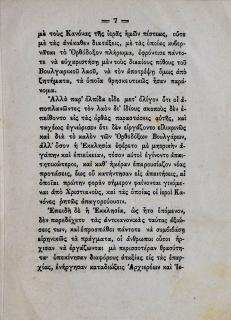 — 7 —
μὲ τοὺς Κανόνας τῆς ἱερᾶς ἡμῶν πίστεως, οὔτε
μὲ τὰς ἀνέκαθεν διατάξεις, μὲ τὰς ὁποίας κυβερ-
νᾶται τὸ Ὀρθόδοξον πλήρωμα, ἐφρόντισε πάντο-
τε νὰ εὐχαριστήσῃ μὲν τοὺς δικαίους πόθους τοῦ
Βουλγαρικοῦ λαοῦ, νὰ τὸν ἀποτρέψῃ ὅμως ἀπὸ
ζητήματα, τὰ ὁποῖα θρησκευτικῶς ἦσαν παρά-
νομα.
Ἀλλὰ παρ' ἐλπίδα εἶδε μετ' ὀλίγον ὅτι οἱ ἀ-
ποπλανῶντες τὸν λαὸν δι' ἰδίους σκοποὺς δὲν ἐ-
πείθοντο εἰς τὰς ὀρθὰς παραστάσεις αὐτῆς, καὶ
ταχέως ἐγνώρισεν ὅτι δὲν εἰργάζοντο εἰλικρινῶς
καὶ διὰ τὸ καλὸν τῶν Ὀρθοδόξων Βουλγάρων,
ἀλλ' ὅσον ἡ Ἐκκλησία ἔφερετο μὲ μητρικὴν ἀ-
γάπην καὶ ἐπιείκειαν, τόσον αὐτοὶ ἐγίνοντο ἀπαι-
τητικώτεροι, καὶ καθ' ἡμέραν ἐπαρουσίαζον νέας
προτάσεις, ἕως οὗ κατήντησαν εἰς ἀπαιτήσεις, αἱ
ὁποῖαι πρώτην φορὰν σήμερον φαίνονται γινόμε-
ναι ἀπὸ Χριστιανοὺς, καὶ τὰς ὁποίας οἱ ἱεροὶ Κα-
νόνες ῥητῶς ἀπαγορεύουσιν.
Ἐπειδὴ δὲ ἡ Ἐκκλησία, ὡς ἦτο ἑπόμενον,
δὲν παρεδέχετο τὰς ἀντικανονικὰς ταύτας ἀξιώ-
σεις των, καὶ ἐπροσπάθει πάντοτε νὰ συμβιβάσῃ
εἰρηνικῶς τὰ πράγματα, οἱ ἄνθρωποι οὗτοι ἤρ-
χισαν νὰ ἐργάζωνται μὲ περισσοτέραν θρασύτη-
τα· ὑπεκίνησαν διαφόρους ἀταξίας εἰς τὰς ἐπαρ-
χίας, ἐνήργησαν καταδιώξεις Ἀρχιερέων καὶ Ἱε-